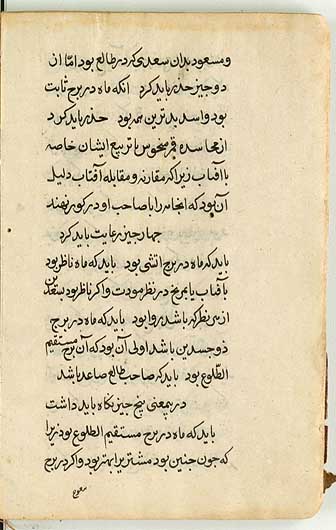 و مسعود بدان سعدی که در طالع بود اما از
دو چیز حذر باید کرد انکه ماه در برج ثابت
بود و اسد بدترین همه بود حذر باید کرد
از مجاسده قمر منحوس یا تربیع ایشان خاصه
با آفتاب زیرا که مقارنه و مقابله آفتاب دلیل
آن بود که انجامه را با صاحب او در کور نهند
چهار چیز رعایت باید کرد
باید که ماه در برج اتشی بود باید که ماه ناظر بود
بآفتاب یا بمریخ در نظر مودت و اکر ناظر بود بسعدین
از هر نظر که باشد روا بود باید که ماه در برج
ذو جسدین باشد اولی آن بود که آن برج مستقیم
الطلوع بود باید که صاحب طالع صاعد باشد
در بمعنی پنج چیز نکاه باید داشت
باید که ماه در برج مستقیم الطلوع بود زیرا
که چون چنین بود مشتریرا بهتر بود و اکر در برج
معوج